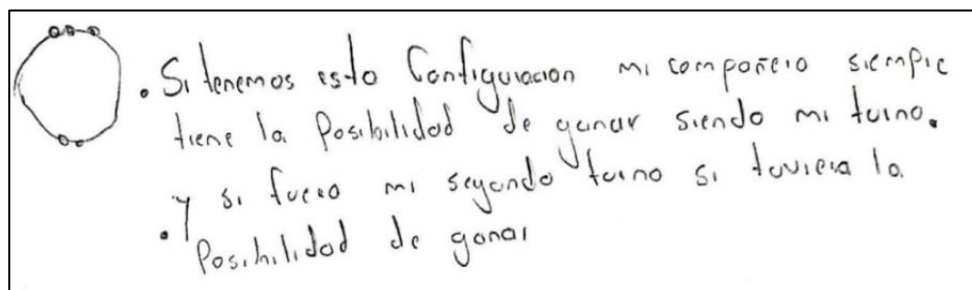 . Si tenemos esta Configuracion mi compañero siempre
tiene la Posibilidad de ganar siendo mi turno.
. y si fuera mi segundo turno si tuviera la
Posibilidad de ganar